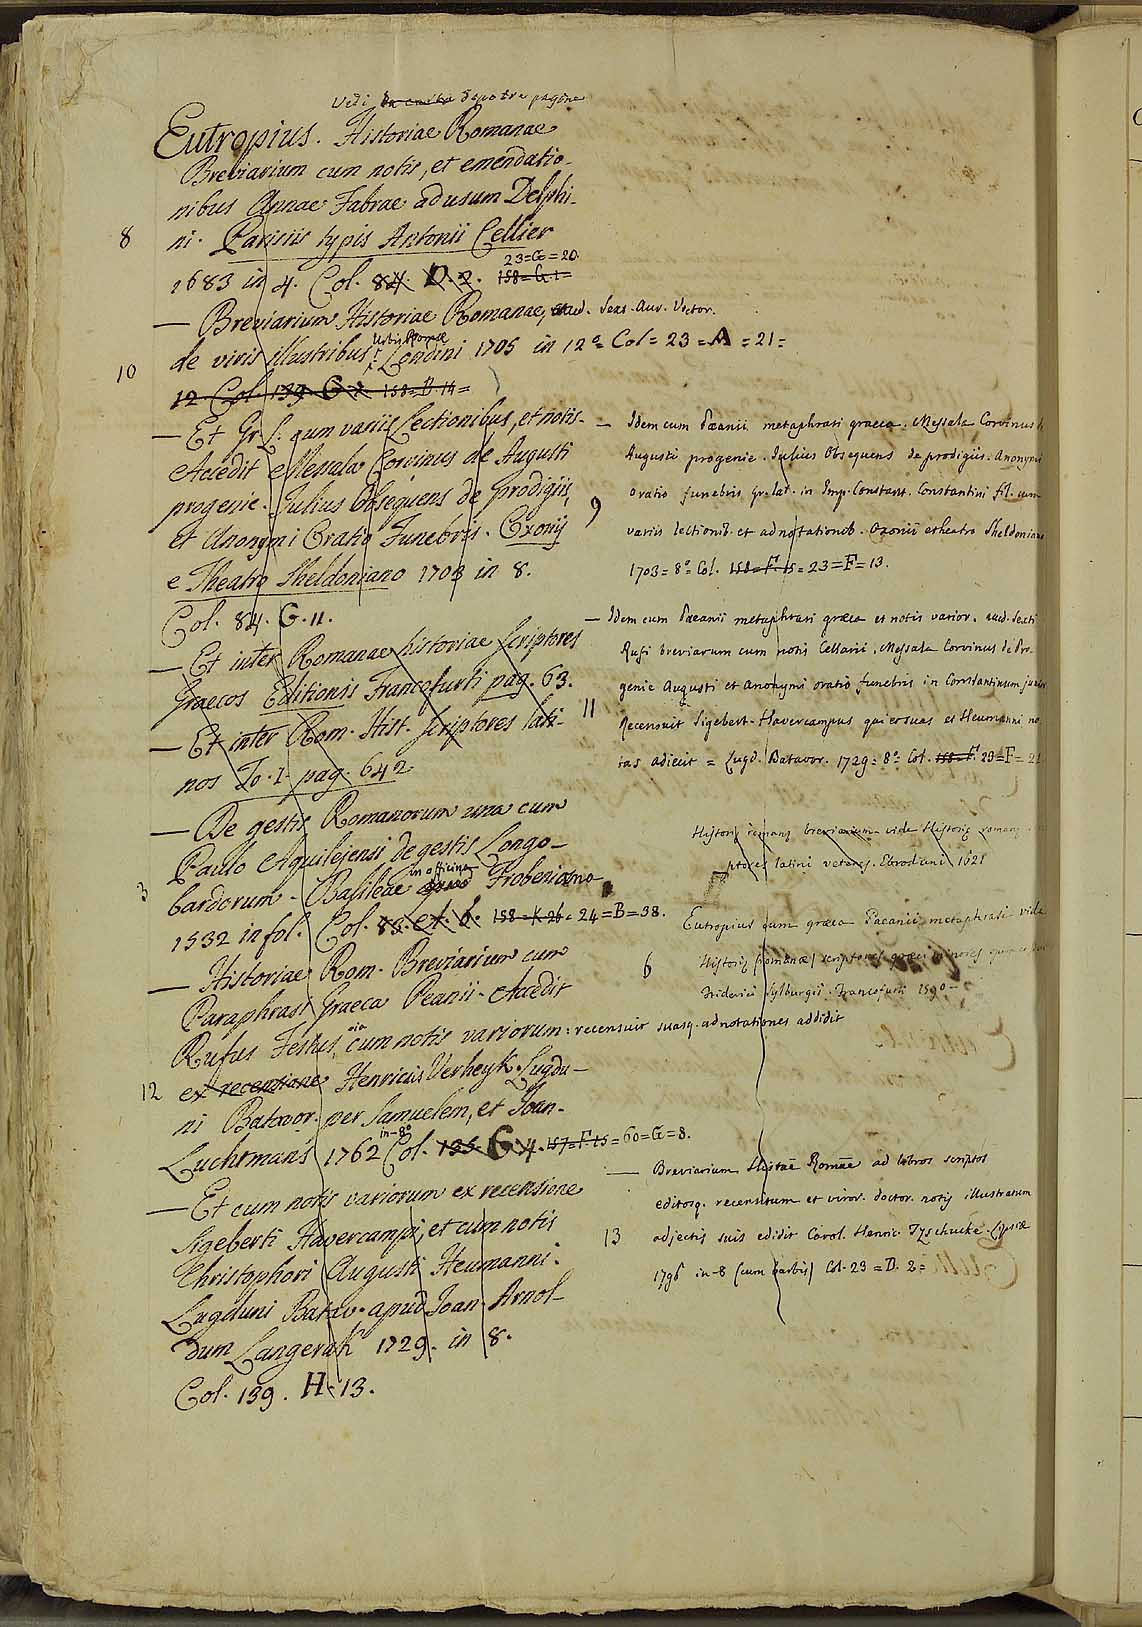 Vedi da carta dopo tre pagine
Eutropius. Historiae Romanae
Breviarium cum notis, et emendatio-
nibus Annae Fabrae ad usum Delphi-
8 ni. Parisiis typis Antonii Cellier
23=G=20.
1683 in 4. Col. 84. D. 2. 158=G.1=
— Breviarium Historiae Romanae, eiusd. Sex. Aur. Victor.
Urbis Romae
10 de viris illustribus Londini 1705 in 12º= Col= 23=A=21=
12 Col. 139 G. 2 158=D.14=
— Et Gr. L. cum variis Lectionibus, et notis.
Accedit Messala Corvinus de Augusti
progenie. Julius Obsequens de prodigiis,
et Anonymi Oratio Funebris. Oxonij
e Theatro Sheldoniano 1703 in 8.
Col. 84. G. 11.
— Et inter Romanae historiae scriptores
Graecos Editionis Francofurti pag. 63.
— Et inter Rom. Hist. scriptores lati-
nos To. I. pag. 642.
— De gestis Romanorum una cum
Paulo Aquilejensi de gestis Longo-
in officina
3 bardorum. Basileae Frobeniana
1532 in fol. Col. 83. et. 6. 158=K.26= 24=B=38.
— Historiae Rom. Breviarium cum
Paraphrasi Graeca Peanii. Accedit
Rufus Festus, cum notis variorum: recensuit suasq. adnotationes addidit
12 ex recensione Henricus Verheyk. Lugdu-
ni Batavor. per Samuelem, et Joan-
in-8º
Luchtmans 1762 Col. 135. G. 4. 157=F.15=60=G=8.
— Et cum notis variorum ex recensione
Sigeberti Havercampi, et cum notis
Christophori Augusti Heumanni.
Lugduni Batav. apud Joan. Arnol-
dum Langerak 1729. in 8.
Col. 139. H. 13.
— Idem cum Paeanii metaphrasi graeca. Messala Corvinus
Augusti progenie. Julius Obsequens de prodigiis. Anonymi
9 oratio funebris gr. lat. in Imp. Constant. Constantini fil. cum
variis lectionib. et adnotationib. Oxonii e theatro Sheldoniano
1703= 8º Col. 158=F.15=23=F=13.
— Idem cum Paeanii metaphrasi graeca et notis varior. eiusd. Sexti
Rufi breviarum cum notis Cellarii. Messala Corvinus de Pro-
genie Augusti et Anonymi oratio funebris in Constantinum
11 Recensuit Sigebert. Havercampus qui et suas et Heumanni no-
tas adiecit = Lugd. Batavor. 1729= 8º Col. 158=F. 23=F=21
Historię romanę breviarium vide Historię romanę
ptores latini veteres. Ebroduni 1621
Eutropius cum graeca Paeanii metaphrasi vide
6 Historię romanae scriptores graeci minores
Friderici Sylburgii. Francofurti 1590
— Breviarium Histae Romae ad libros scriptos
editosq. recensitum et viror. doctor. notis illustratum
13 adjectis suis edidit Carol. Henric. Tzschucke. Lipsiae
1796 in-8 (cum partis) Col. 23=D. 2=